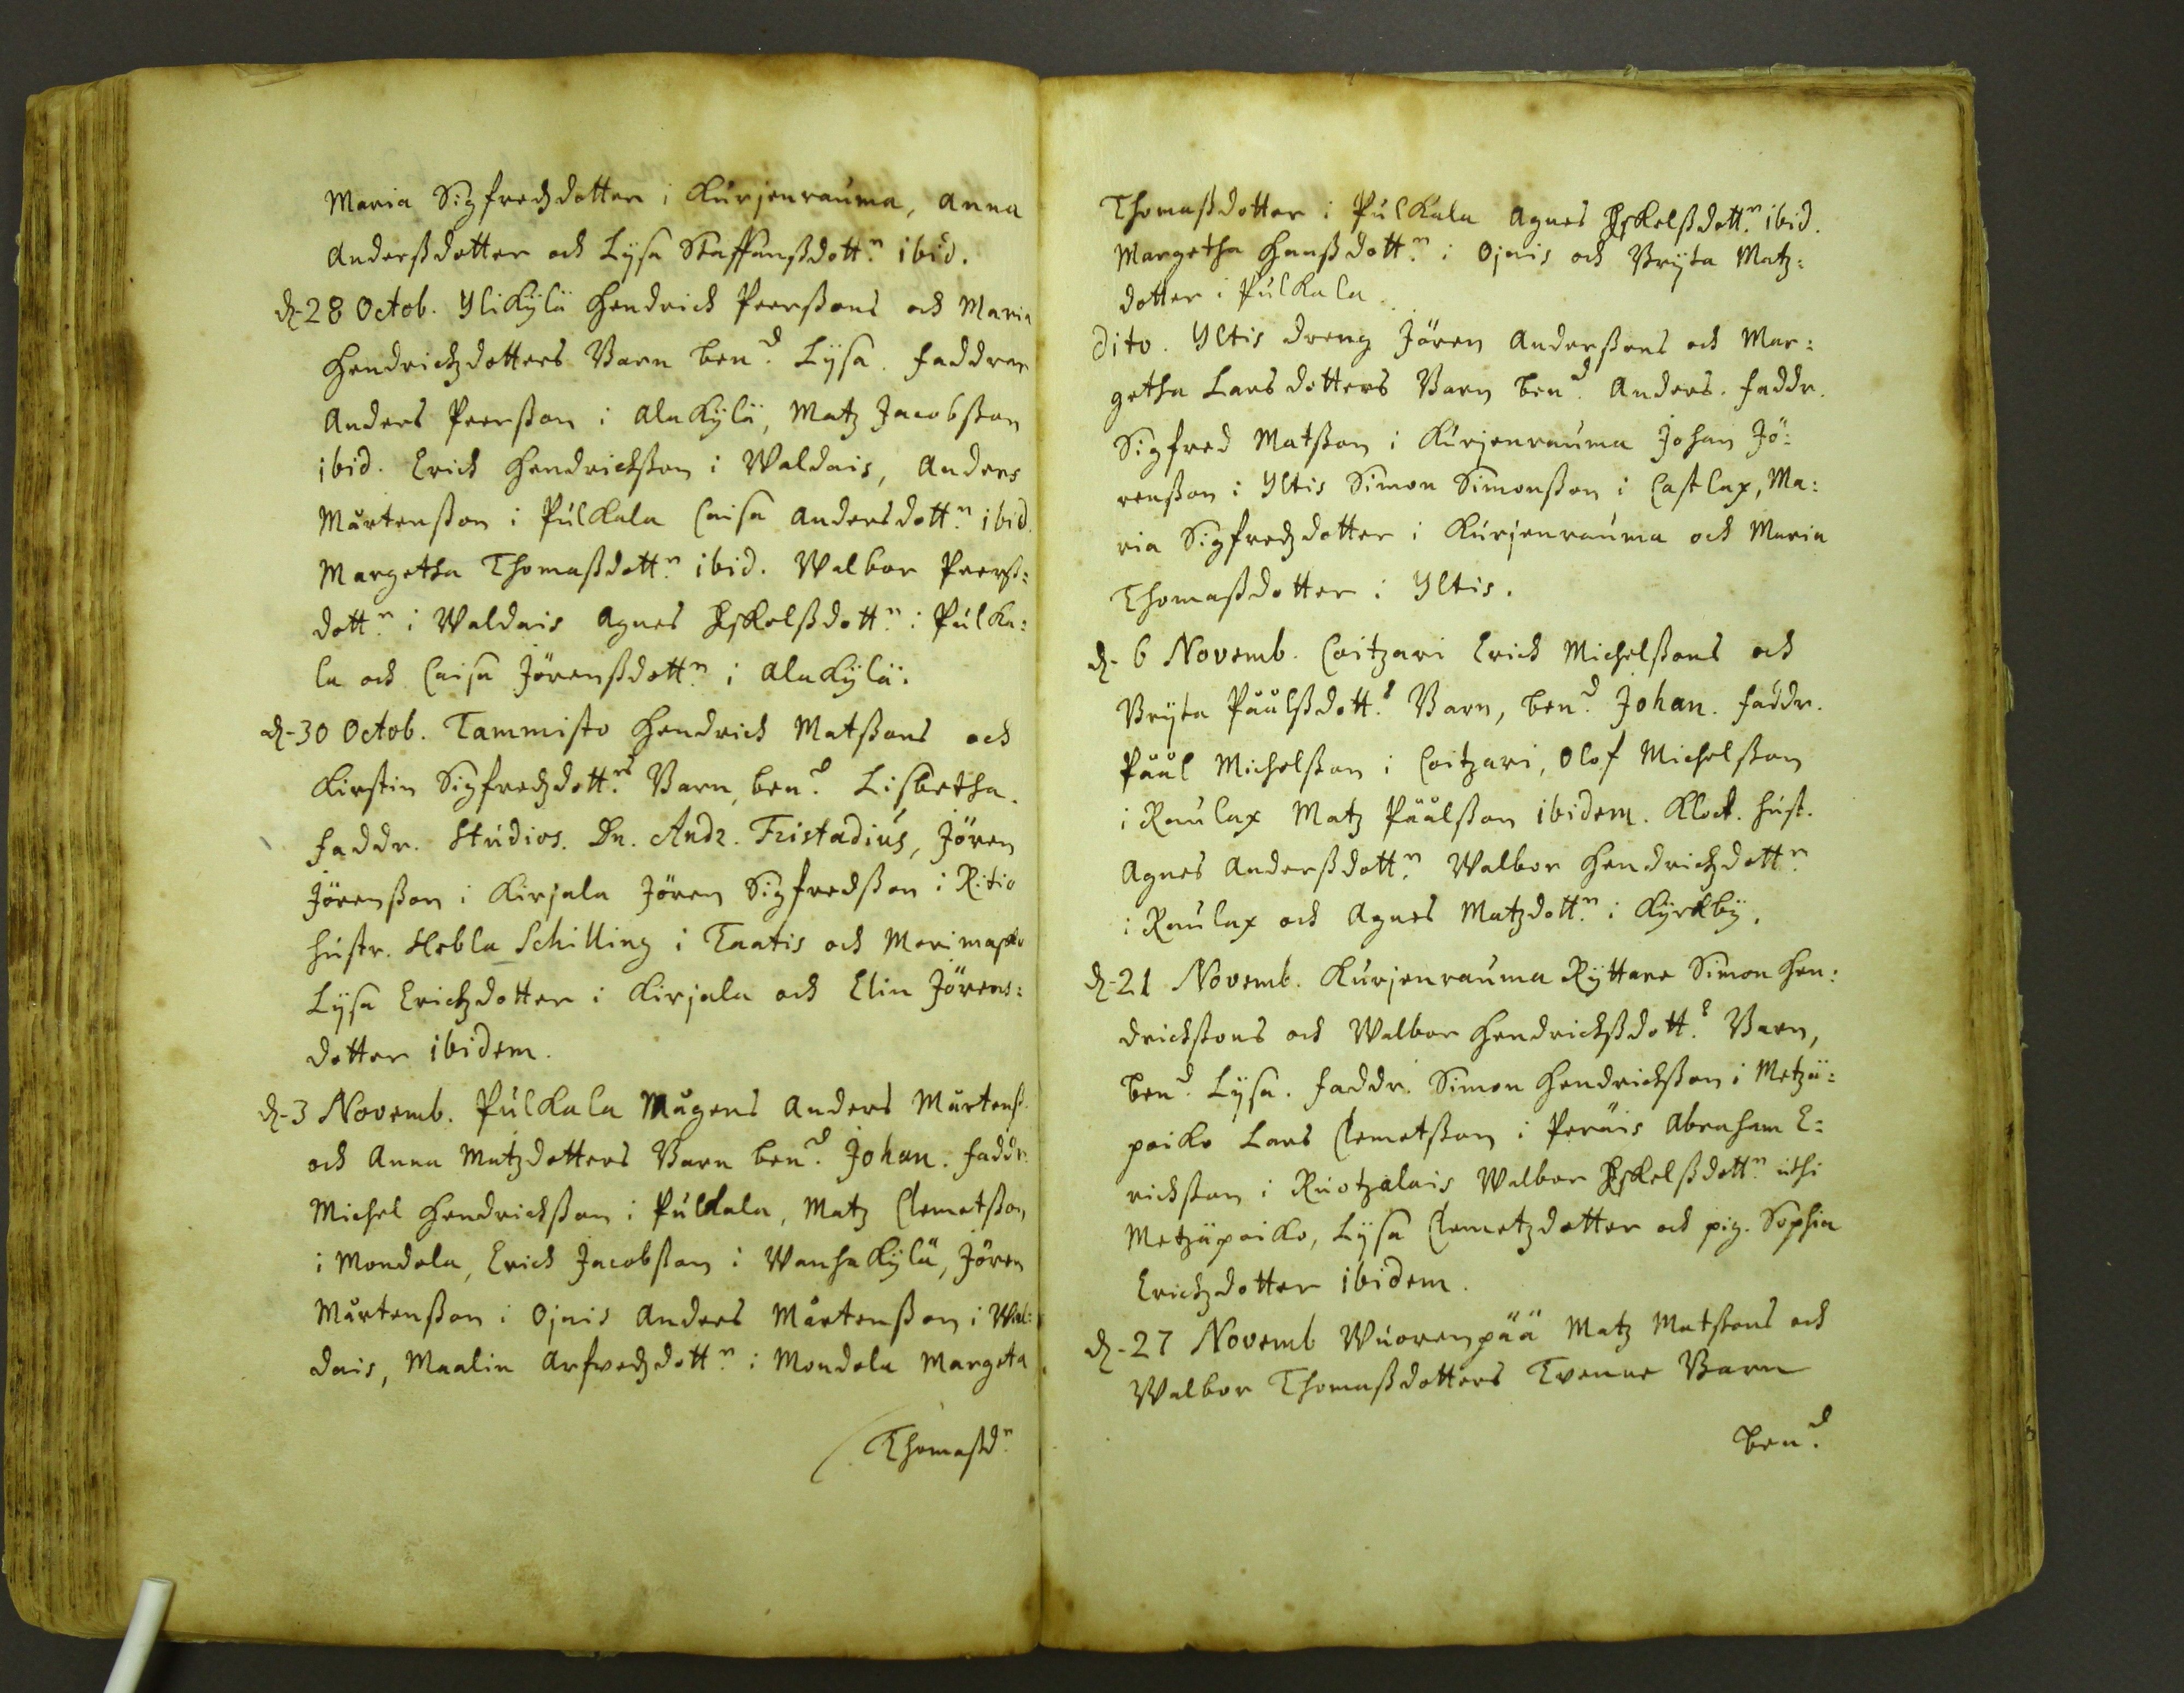 Maria Sigfredzdotter i Kurjenrauma, Anna
Anderßdotter och Lysa Staffanßdott.r ibid.
d. 28 Octob. Ylikylä Hendrich Peerßons och Maria
Hendrichzdotters Barn ben.d Lysa. Faddrar
Anders Peerßon i Alakylä, Matz Jacobßon
ibid. Erich Hendrichßon i Waldais, Anders
Mårtenßon i Pulkala Caisa Andersdott.r ibid.
Margetha Thomaßdott.r ibid. Walbor Peerß:
dott.r i Waldais Agnes Eskelßdott.r i Pulka:
la och Caisa Jörenßdott.r i Alakylä.
d. 30 Octob. Tammisto Hendrich Matßons och
Kirstin Sigfredzdott.rs Barn, ben.d Lisbetha.
Faddr. Studios. Dn. Andr. Fristadius, Jören
Jörenßon i Kirjala Jören Sigfredßon i Ritio
hustr. Hebla Schilling i Taatis och Merimasku
Lysa Erichzdotter i Kirjala och Elin Jörens:
dotter ibidem.
d. 3 Novemb. Pulkala Mågens Anders Mårtenß.
och Anna Matzdotters Barn ben.d Johan. Faddr.
Michel Hendrichßon i Pulkala, Matz Clemetßon
i Mondola, Erich Jacobßon i Wanhakylä, Jören
Mårtenßon i Ojais Anders Mårtenßon i Wal:
dais, Maalin Arfvedzdott.r i Mondola Margeta
Thomaßd.r
Thomaßdotter i Pulkala Agnes Eskelßdott.r ibid.
Margetha Hanßdott.r i Ojais och Bryta Matz:
dotter i Pulkala.
Dito. Yltis dreng Jören Anderßons och Mar:
getha Larsdotters Barn ben.d Anders. Faddr.
Sigfred Matßon i Kurjenrauma Johan Jö:
renßon i Yltis Simon Simonßon i Castlax, Ma:
ria Sigfredzdotter i Kurjenrauma och Maria
Thomaßdotter i Yltis.
d. 6 Novemb. Coitzari Erich Michelßons och
Bryta Påålßdott.s Barn, ben.d Johan. Faddr.
Påål Michelßon i Coitzari, Olof Michelßon
i Raulax Matz Påålßon ibidem. Klock. hust.
Agnes Anderßdott.r Walbor Hendrichzdott.r
i Raulax och Agnes Matzdott.r i Kyrkby.
d. 21 Novemb. Kurjenrauma Ryttare Simon Hen:
drichßons och Walbor Hendrichßdott.s Barn,
ben.d Lysa. Faddr. Simon Hendrichßon i Metzä:
poiko Lars Clemetßon i Peräis Abraham E:
richßon i Ruotzalais Walbor Eskelßdott.r uthi
Metzäpoiko, Lysa Clemetzdotter och pig. Sophia
Erichzdotter ibidem.
d. 27 Novemb Wuorenpää Matz Matßons och
Walbor Thomaßdotters Tvenne Barn
ben.d